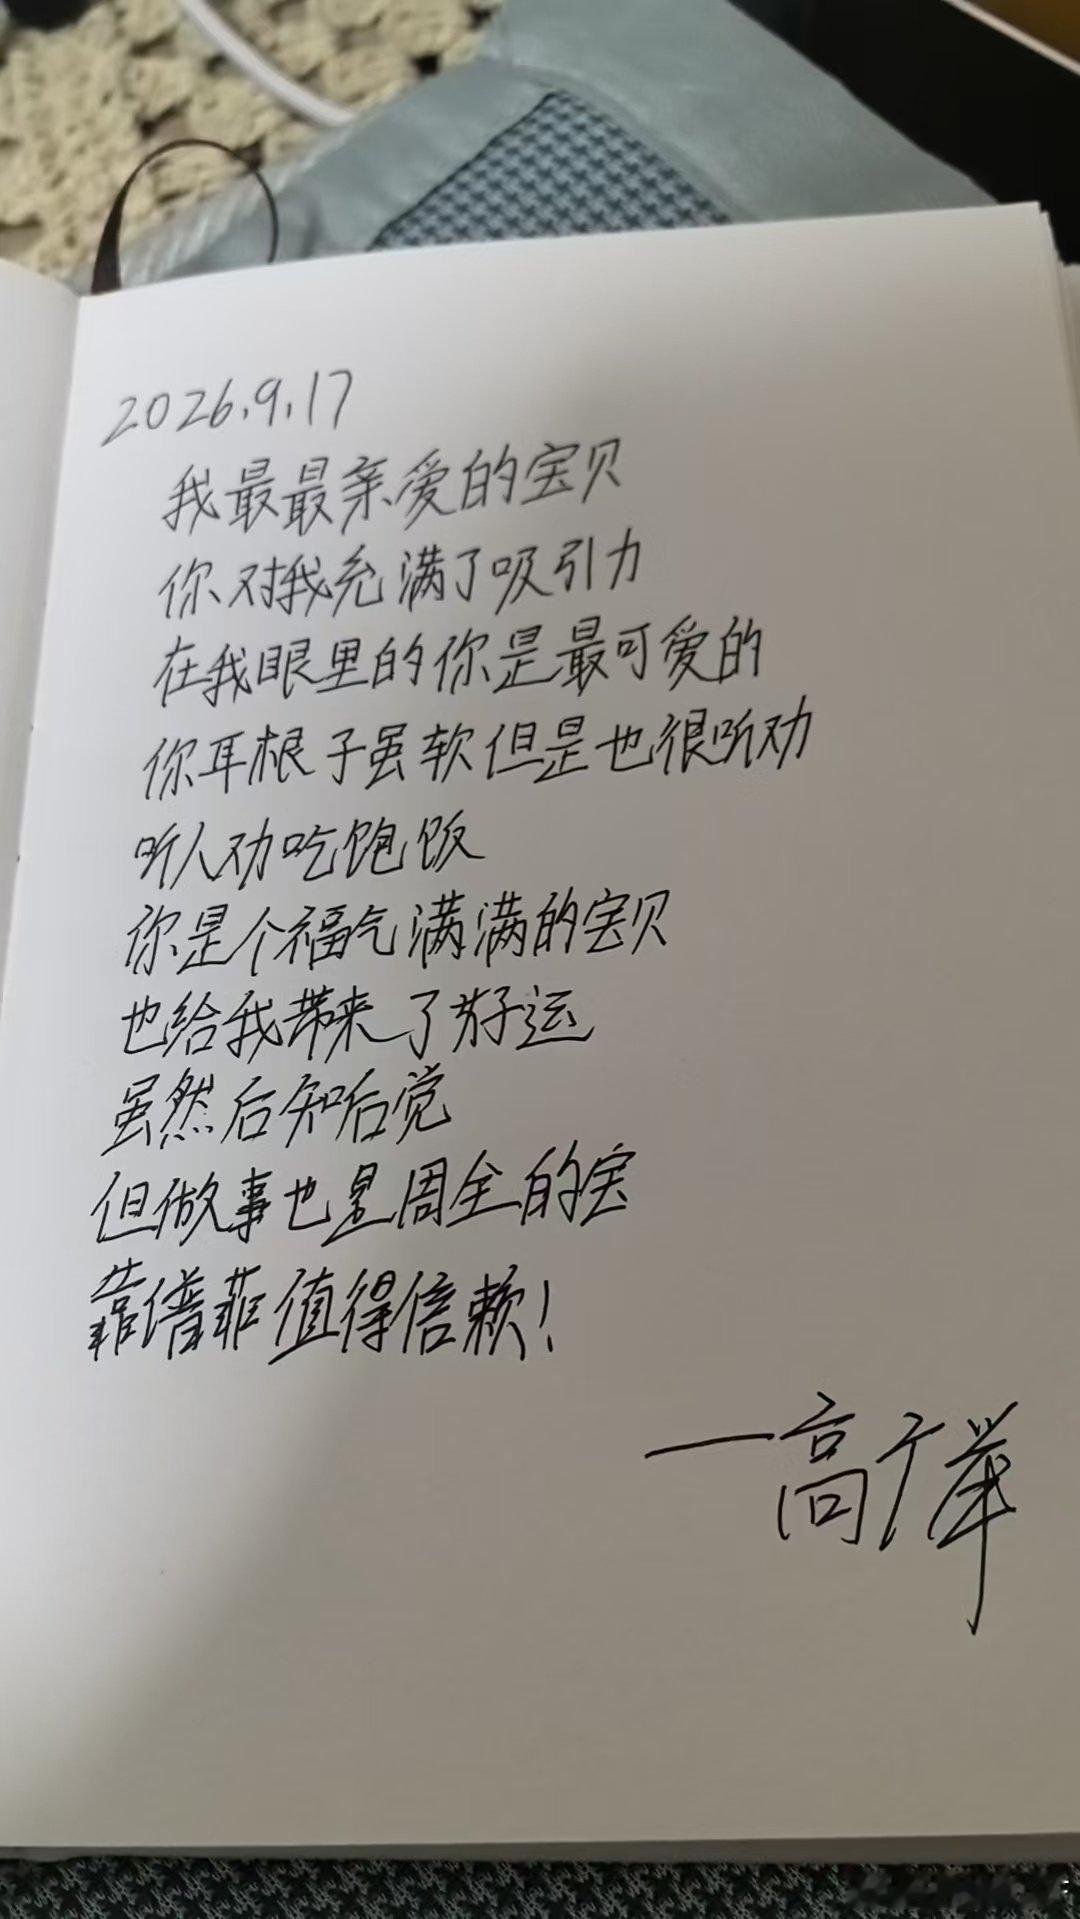 2026.9.17
我最最亲爱的宝贝
你对我充满了吸引力
在我眼里的你是最可爱的
你耳根子虽软但是也很听劝
听人劝吃饱饭
你是个福气满满的宝贝
也给我带来了好运
虽然后知后觉
但做事也是周全的宝
靠谱菲值得信赖！
—高广举